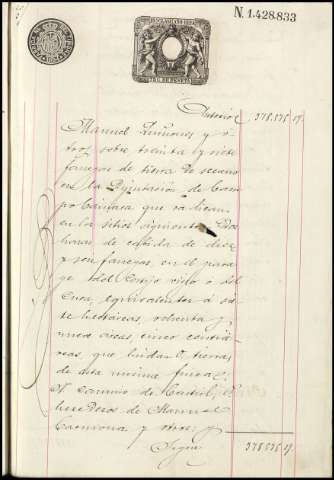 N. 1.428.833
Anterior 378.535 17.
Manuel Quiñones y o
tros sobre treinta y siete
fanegas de tierra de secano
en la Diputación de Cam
po Cámara que radican
en los sitios siguientes: Dos
hazas de cabida de diez
y seis fanegas, en el para
ge del Cortijo viejo o del
Cura, equivalentes a
hectáreas, ochenta y
nueve areas, cinco centiá
reas, que lindan tierras
de esta misma finca, el
camino de Castril,
herederos de Manuel
Carmona y otros; y
Sigue 378.535 17.